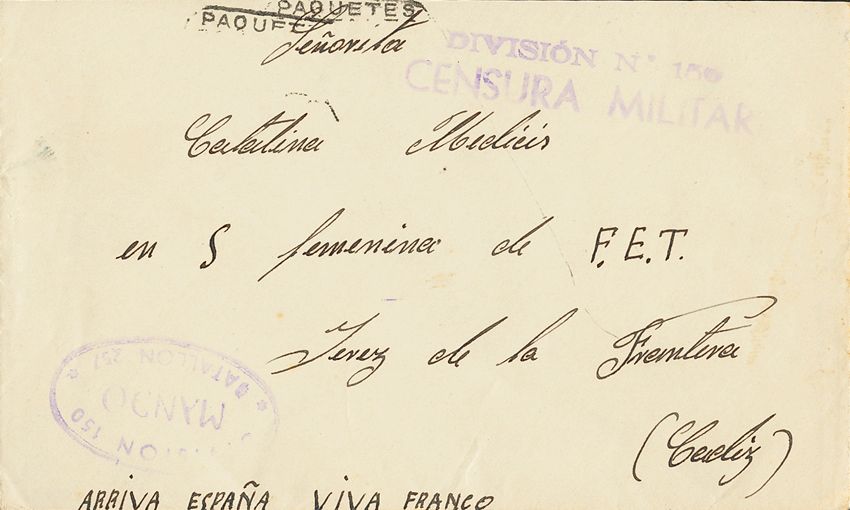 PAQUETES
PAQUET
Señorita
DIVISIÓN Nº 150
CENSURA MILITAR
Catalina Medicis
en S femenina de F.E.T.
Jerez de la Frontera
(Cadiz)
DIVISION 150 * BATALLON 257 *
MANDO
ARRIVA ESPAÑA VIVA FRANCO